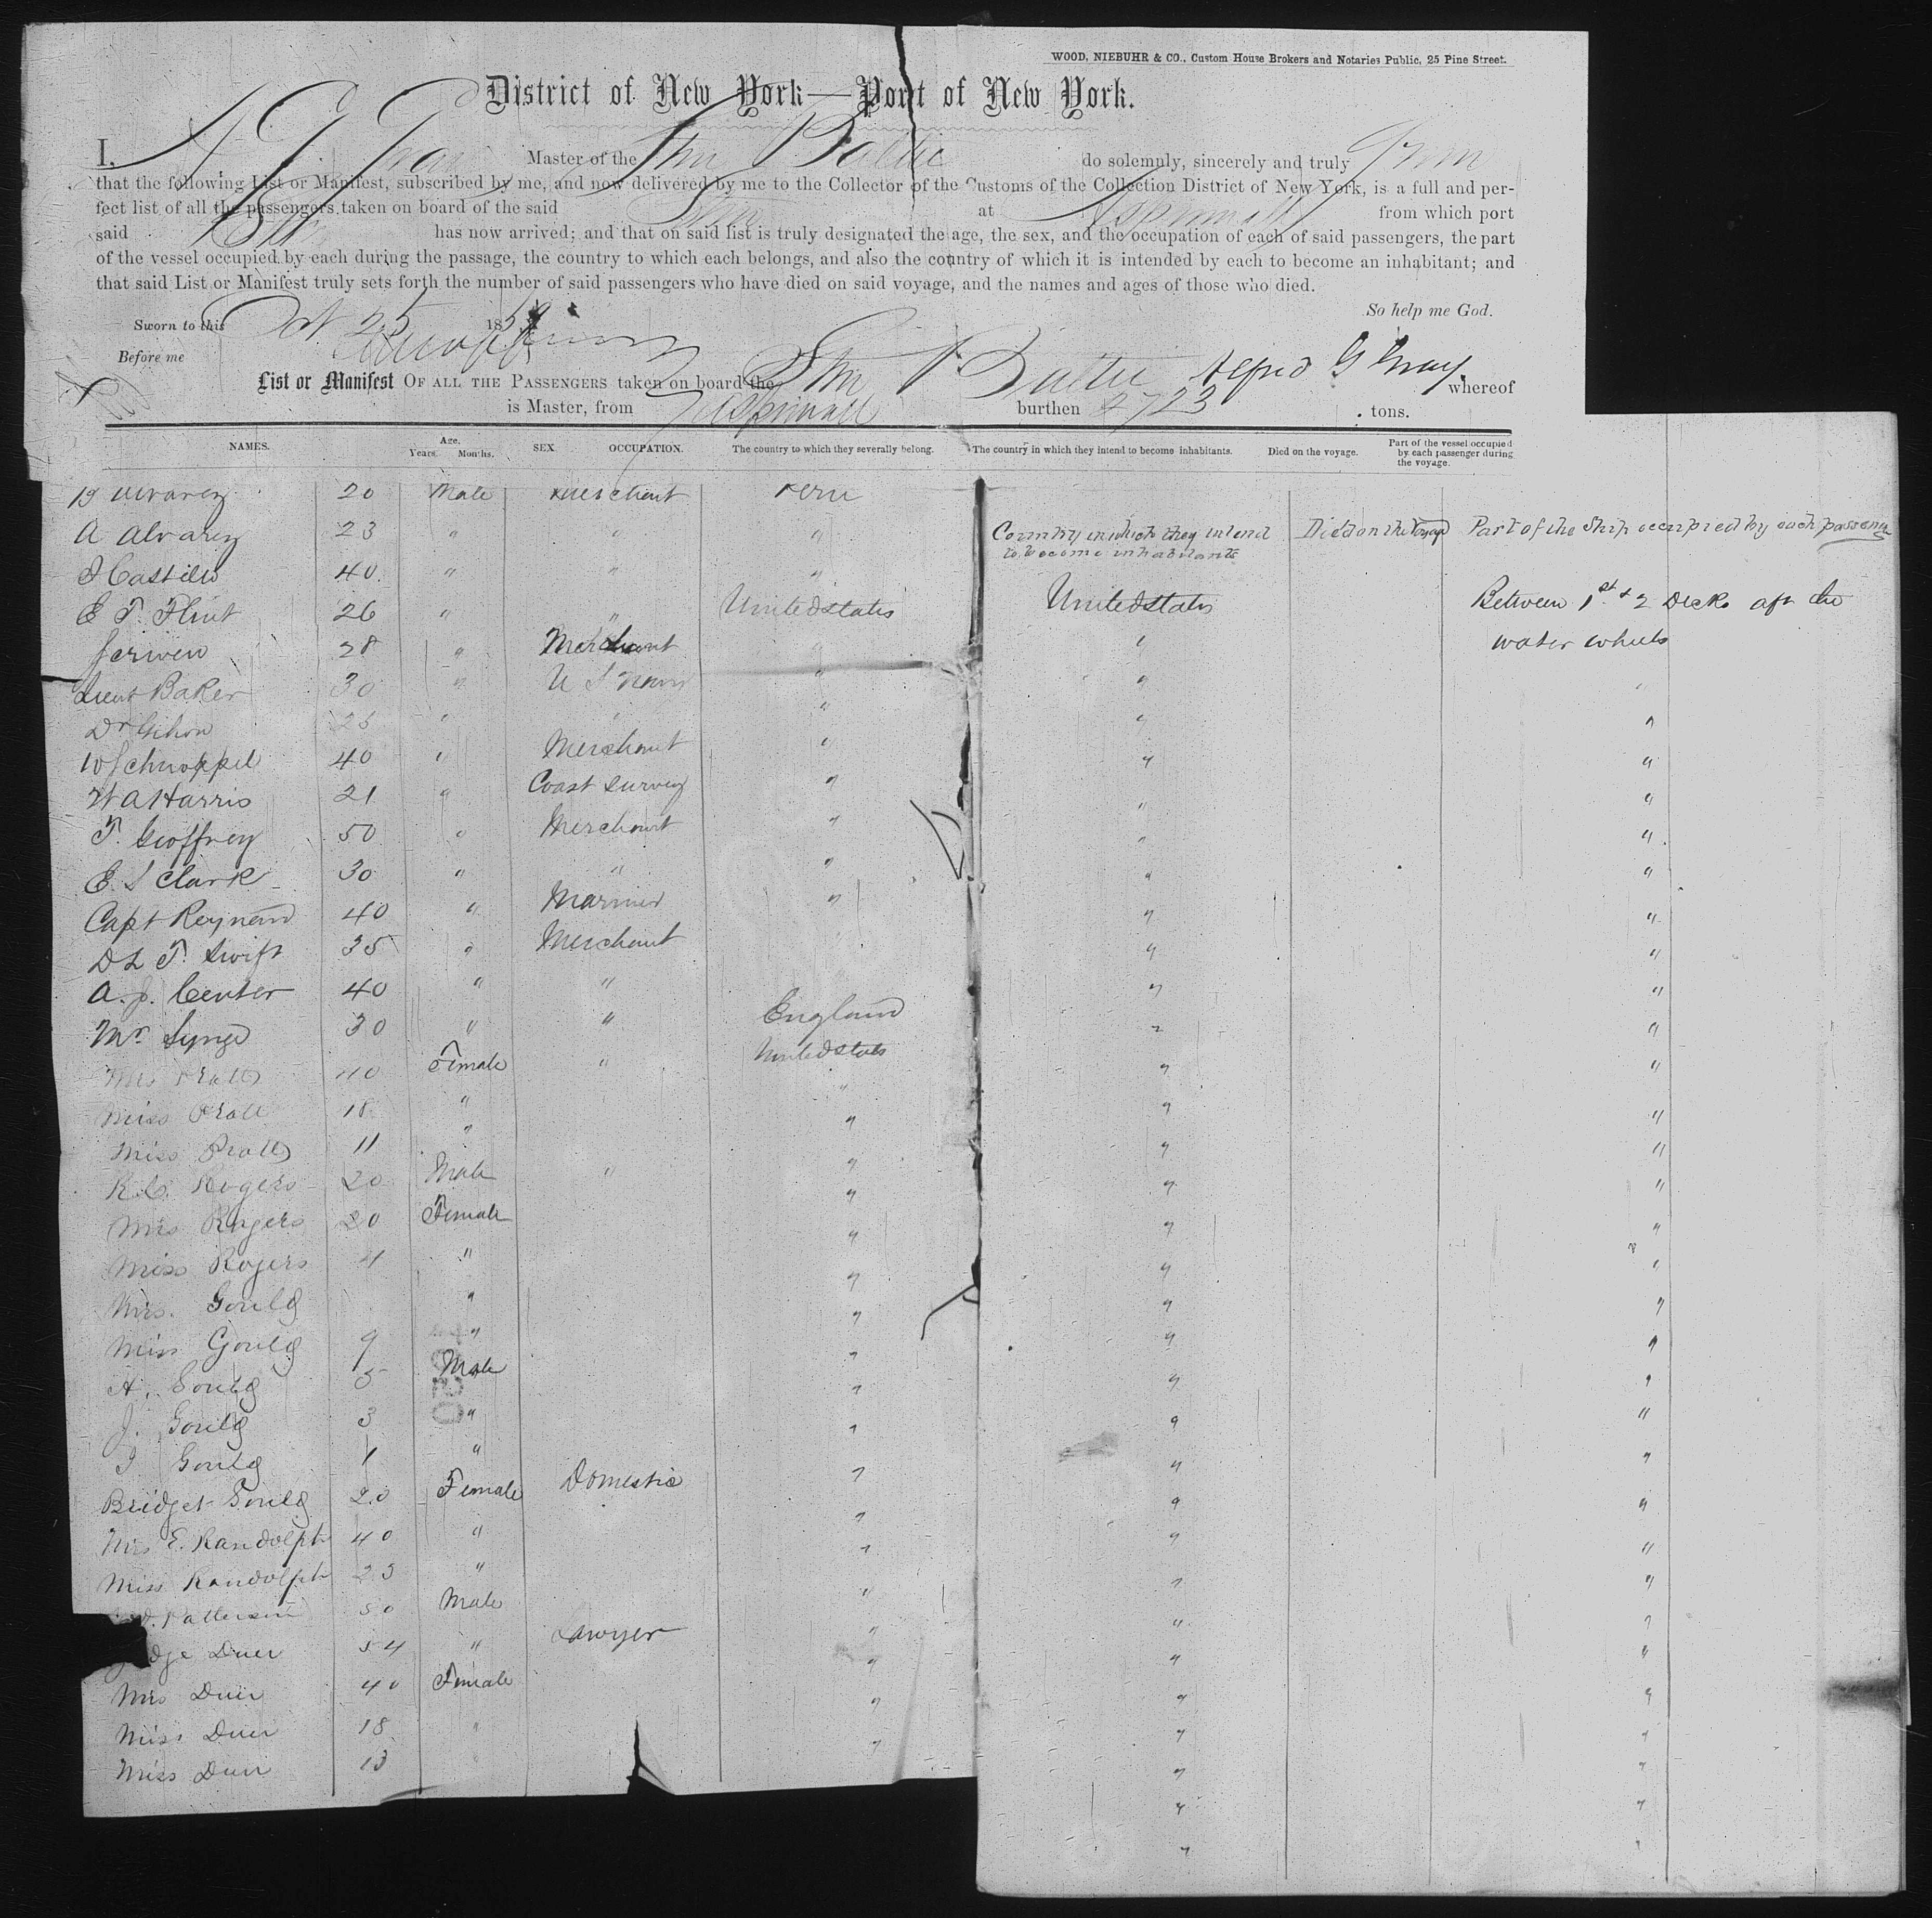 WOOD, NIEBUHR & CO., Custom House Brokers and Notaries Public, 25 Pine Street.
District of New York—Port of New York.
I, A G Gray Master of the Str Baltic do solemnly, sincerely and truly
that the following List or Manifest, subscribed by me, and now delivered by me to the Collector of the Customs of the Collection District of New York, is a full and per-
fect list of all the passengers taken on board of the said Str at Aspinwall from which port
said has now arrived; and that on said list is truly designated the age, the sex, and the occupation of each of said passengers, the part
of the vessel occupied by each during the passage, the country to which each belongs, and also the country of which it is intended by each to become an inhabitant; and
that said List or Manifest truly sets forth the number of said passengers who have died on said voyage, and the names and ages of those who died.
So help me God.
Sworn to this Oct 25 1859
Before me
List or Manifest OF ALL THE PASSENGERS taken on board the Str Baltic Alfred G Gray whereof
is Master, from Aspinwall burthen 2723 tons.
NAMES. Age. Years. Months. SEX. OCCUPATION. The country to which they severally belong. The country in which they intend to become inhabitants. Died on the voyage. Part of the vessel occupied by each passenger during the voyage.
Alvarez 20 Male Merchant Peru
A Alvarez 23 " " "
Country in which they intend to become inhabitants Died on the Voyage Part of the Ship occupied by each passenger
J Castillo 40 " " "
E T. Flint 26 " " United States United States Between 1st & 2 Decks aft the
28 " Merchant " " water wheels
Lieut Baker 30 " U S Navy " " "
Dr Gihon " " " " "
W Schnoppel 40 " Merchant " " "
W A Harris 21 " Coast Survey " " "
T. Geoffrey 50 " Merchant " " "
E. S Clark 30 " " " " "
Capt Reynaud 40 " Mariner " " "
D L T. Swift 35 " Merchant " "
A. J. Center 40 " " " "
Mr Synge 30 " " England " "
Mrs Pratt 40 Female " United States " "
Miss Pratt 18 " " " "
Miss Pratt 11 " " " "
R. C. Rogers 20 Male " " " "
Mrs Rogers 20 Female " " "
Miss Rogers 4 " " " "
Mrs. Gould " " " "
Miss Gould 9 " " " "
A. Gould 5 Male " " "
J. Gould 3 " " " "
I Gould 1 " " " "
Bridget Gould 20 Female Domestic " " "
Mrs E. Randolph 40 " " " "
Miss Randolph 23 " " " "
Patterson 50 Male " " "
dge Duer 54 " Lawyer " " "
Mrs Duer 40 Female " " "
Miss Duer 18 " " " "
Miss Duer 13 " " " "